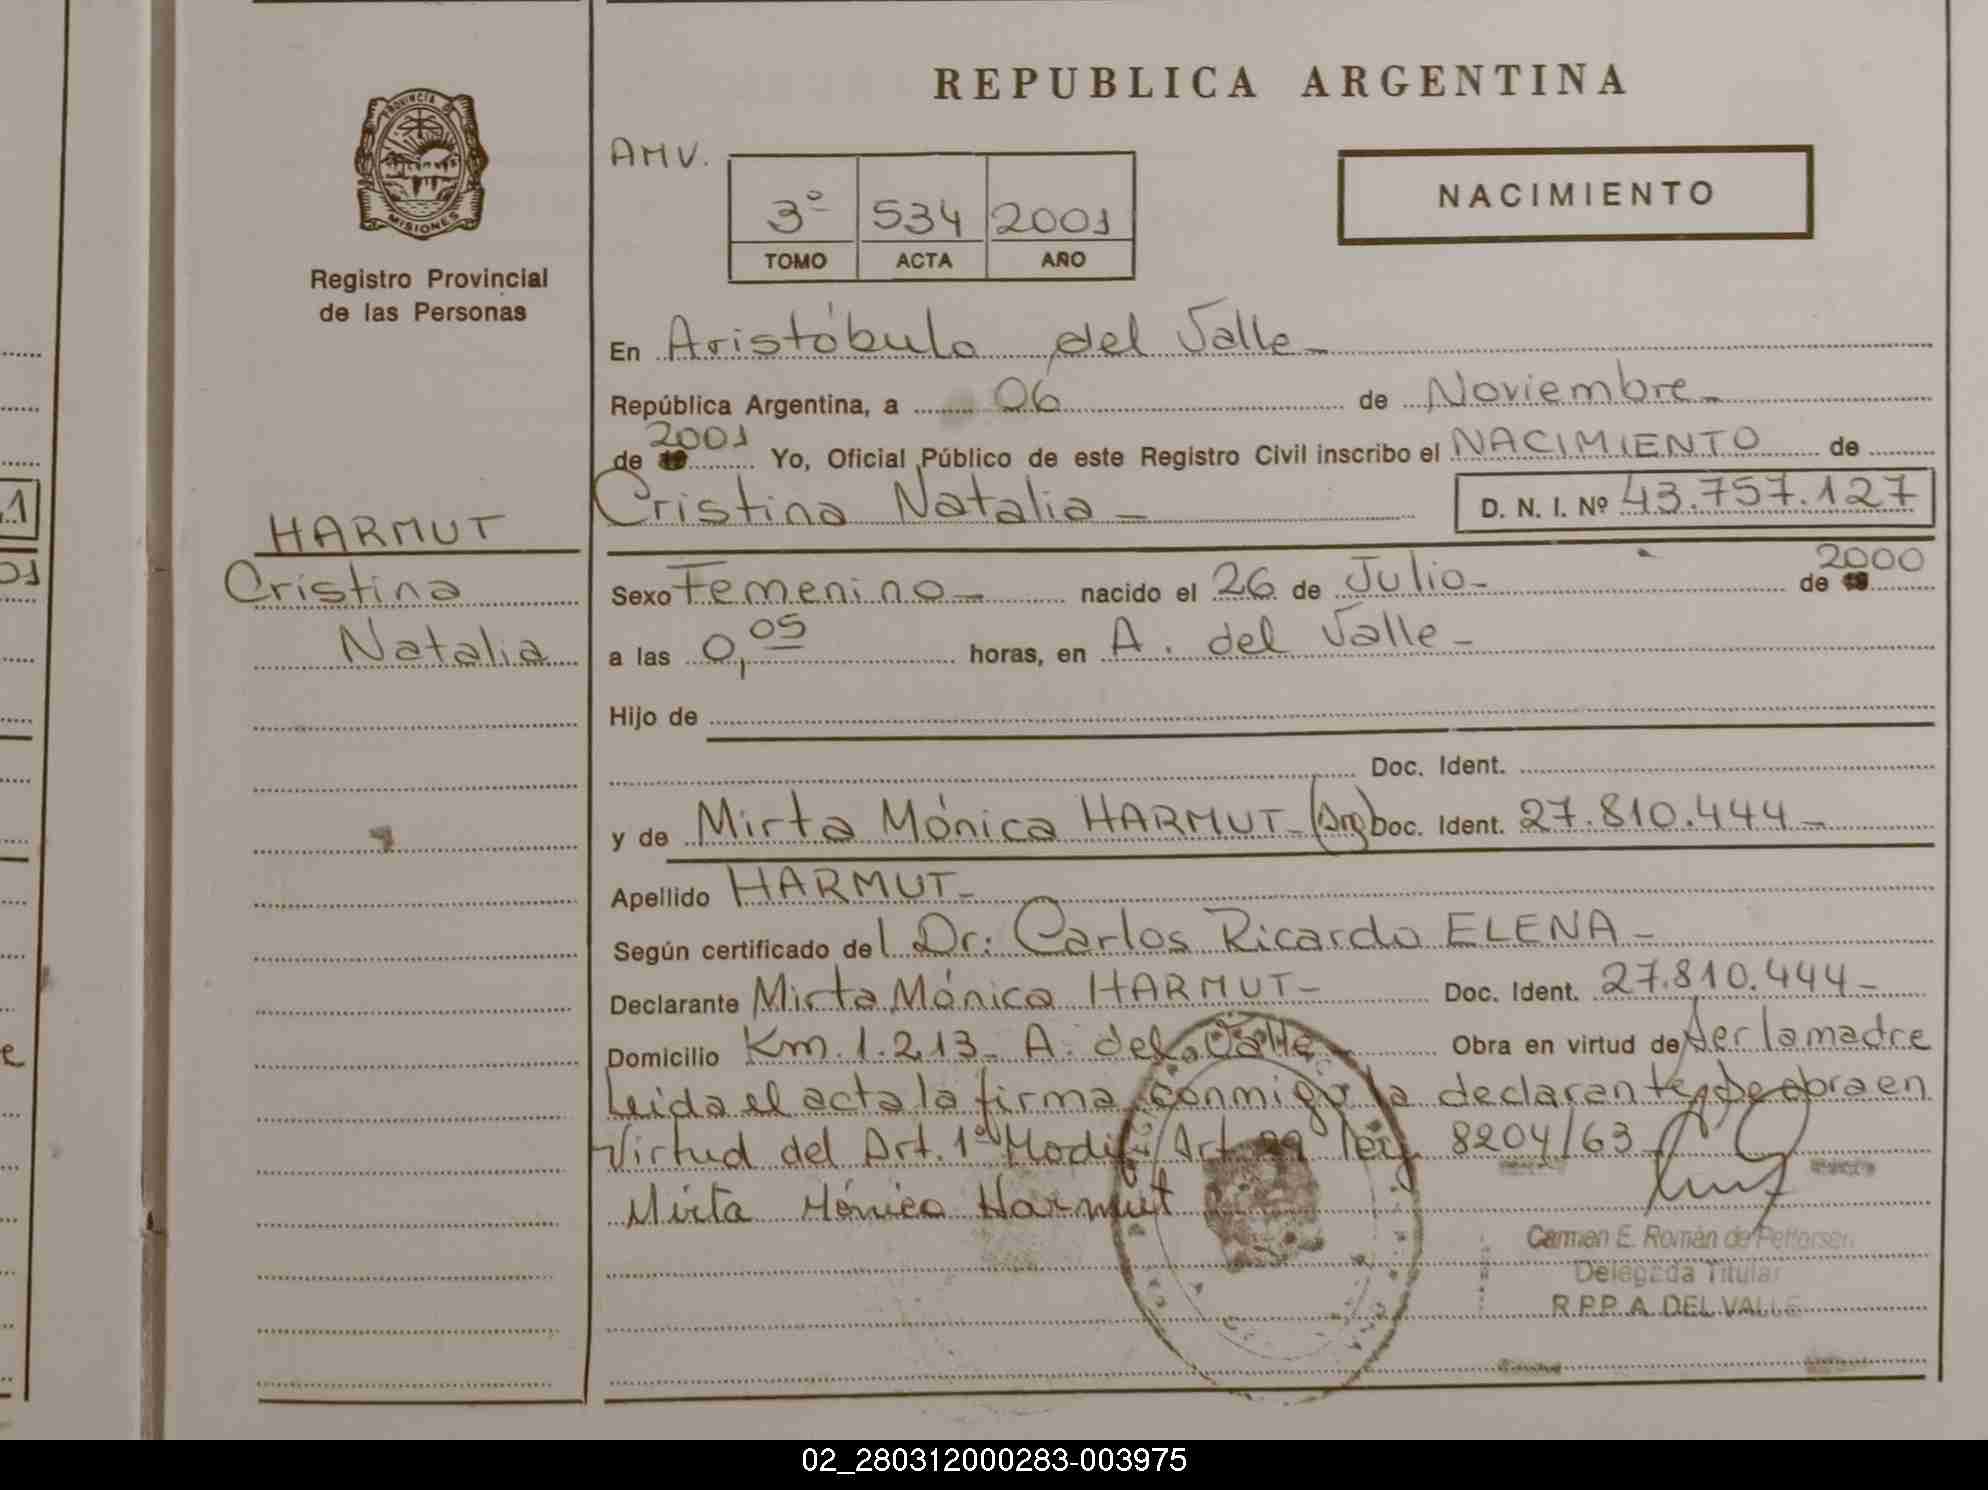 REPUBLICA ARGENTINA
PROVINCIA DE
MISIONES
Registro Provincial
de las Personas
AMV.
3º 534 2001
TOMO ACTA AÑO
NACIMIENTO
En Aristóbulo del Valle
República Argentina, a 06 de Noviembre
de 2001 Yo, Oficial Público de este Registro Civil inscribo el NACIMIENTO de
Cristina Natalia D. N. I. Nº 43.757.127
HARMUT
Cristina
Natalia
Sexo Femenino nacido el 26 de Julio de 2000
a las 0,05 horas, en A. del Valle
Hijo de
Doc. Ident.
y de Mirta Mónica HARMUT (Arg) Doc. Ident. 27.810.444
Apellido HARMUT
Según certificado del Dr: Carlos Ricardo ELENA
Declarante Mirta Mónica HARMUT Doc. Ident. 27.810.444
Domicilio Km. 1.213 A. del Valle Obra en virtud de ser la madre
Leida el acta la firma conmigo la declarante obra en
Virtud del Art. 1º Modif. Art. ley 8204/63
Mirta Mónica Harmut
Carmen E. Román de Pettersen
Delegada Titular
R.P.P. A. DEL VALLE
1
01
e
02_280312000283-003975